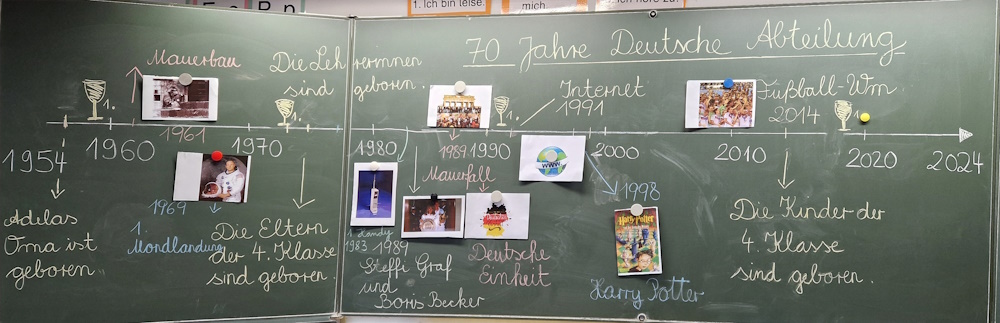 1. Ich bin leise.
mich
70 Jahre Deutsche Abteilung
Mauerbau
1961
Die Lehrerinnen
sind geboren.
Internet
1991
Fußball-Wm
2014
1.
1.
1954
1960
1970
1980
1989
1990
2000
2010
2020
2024
Adelas
Oma ist
geboren
1969
1.
Mondlandung
Die Eltern
der 4. Klasse
sind geboren.
1. Handy
1983
1989
Steffi Graf
und
Boris Becker
Mauerfall
Deutsche
Einheit
WWW
1998
Harry Potter
Harry Potter
Die Kinder der
4. Klasse
sind geboren.